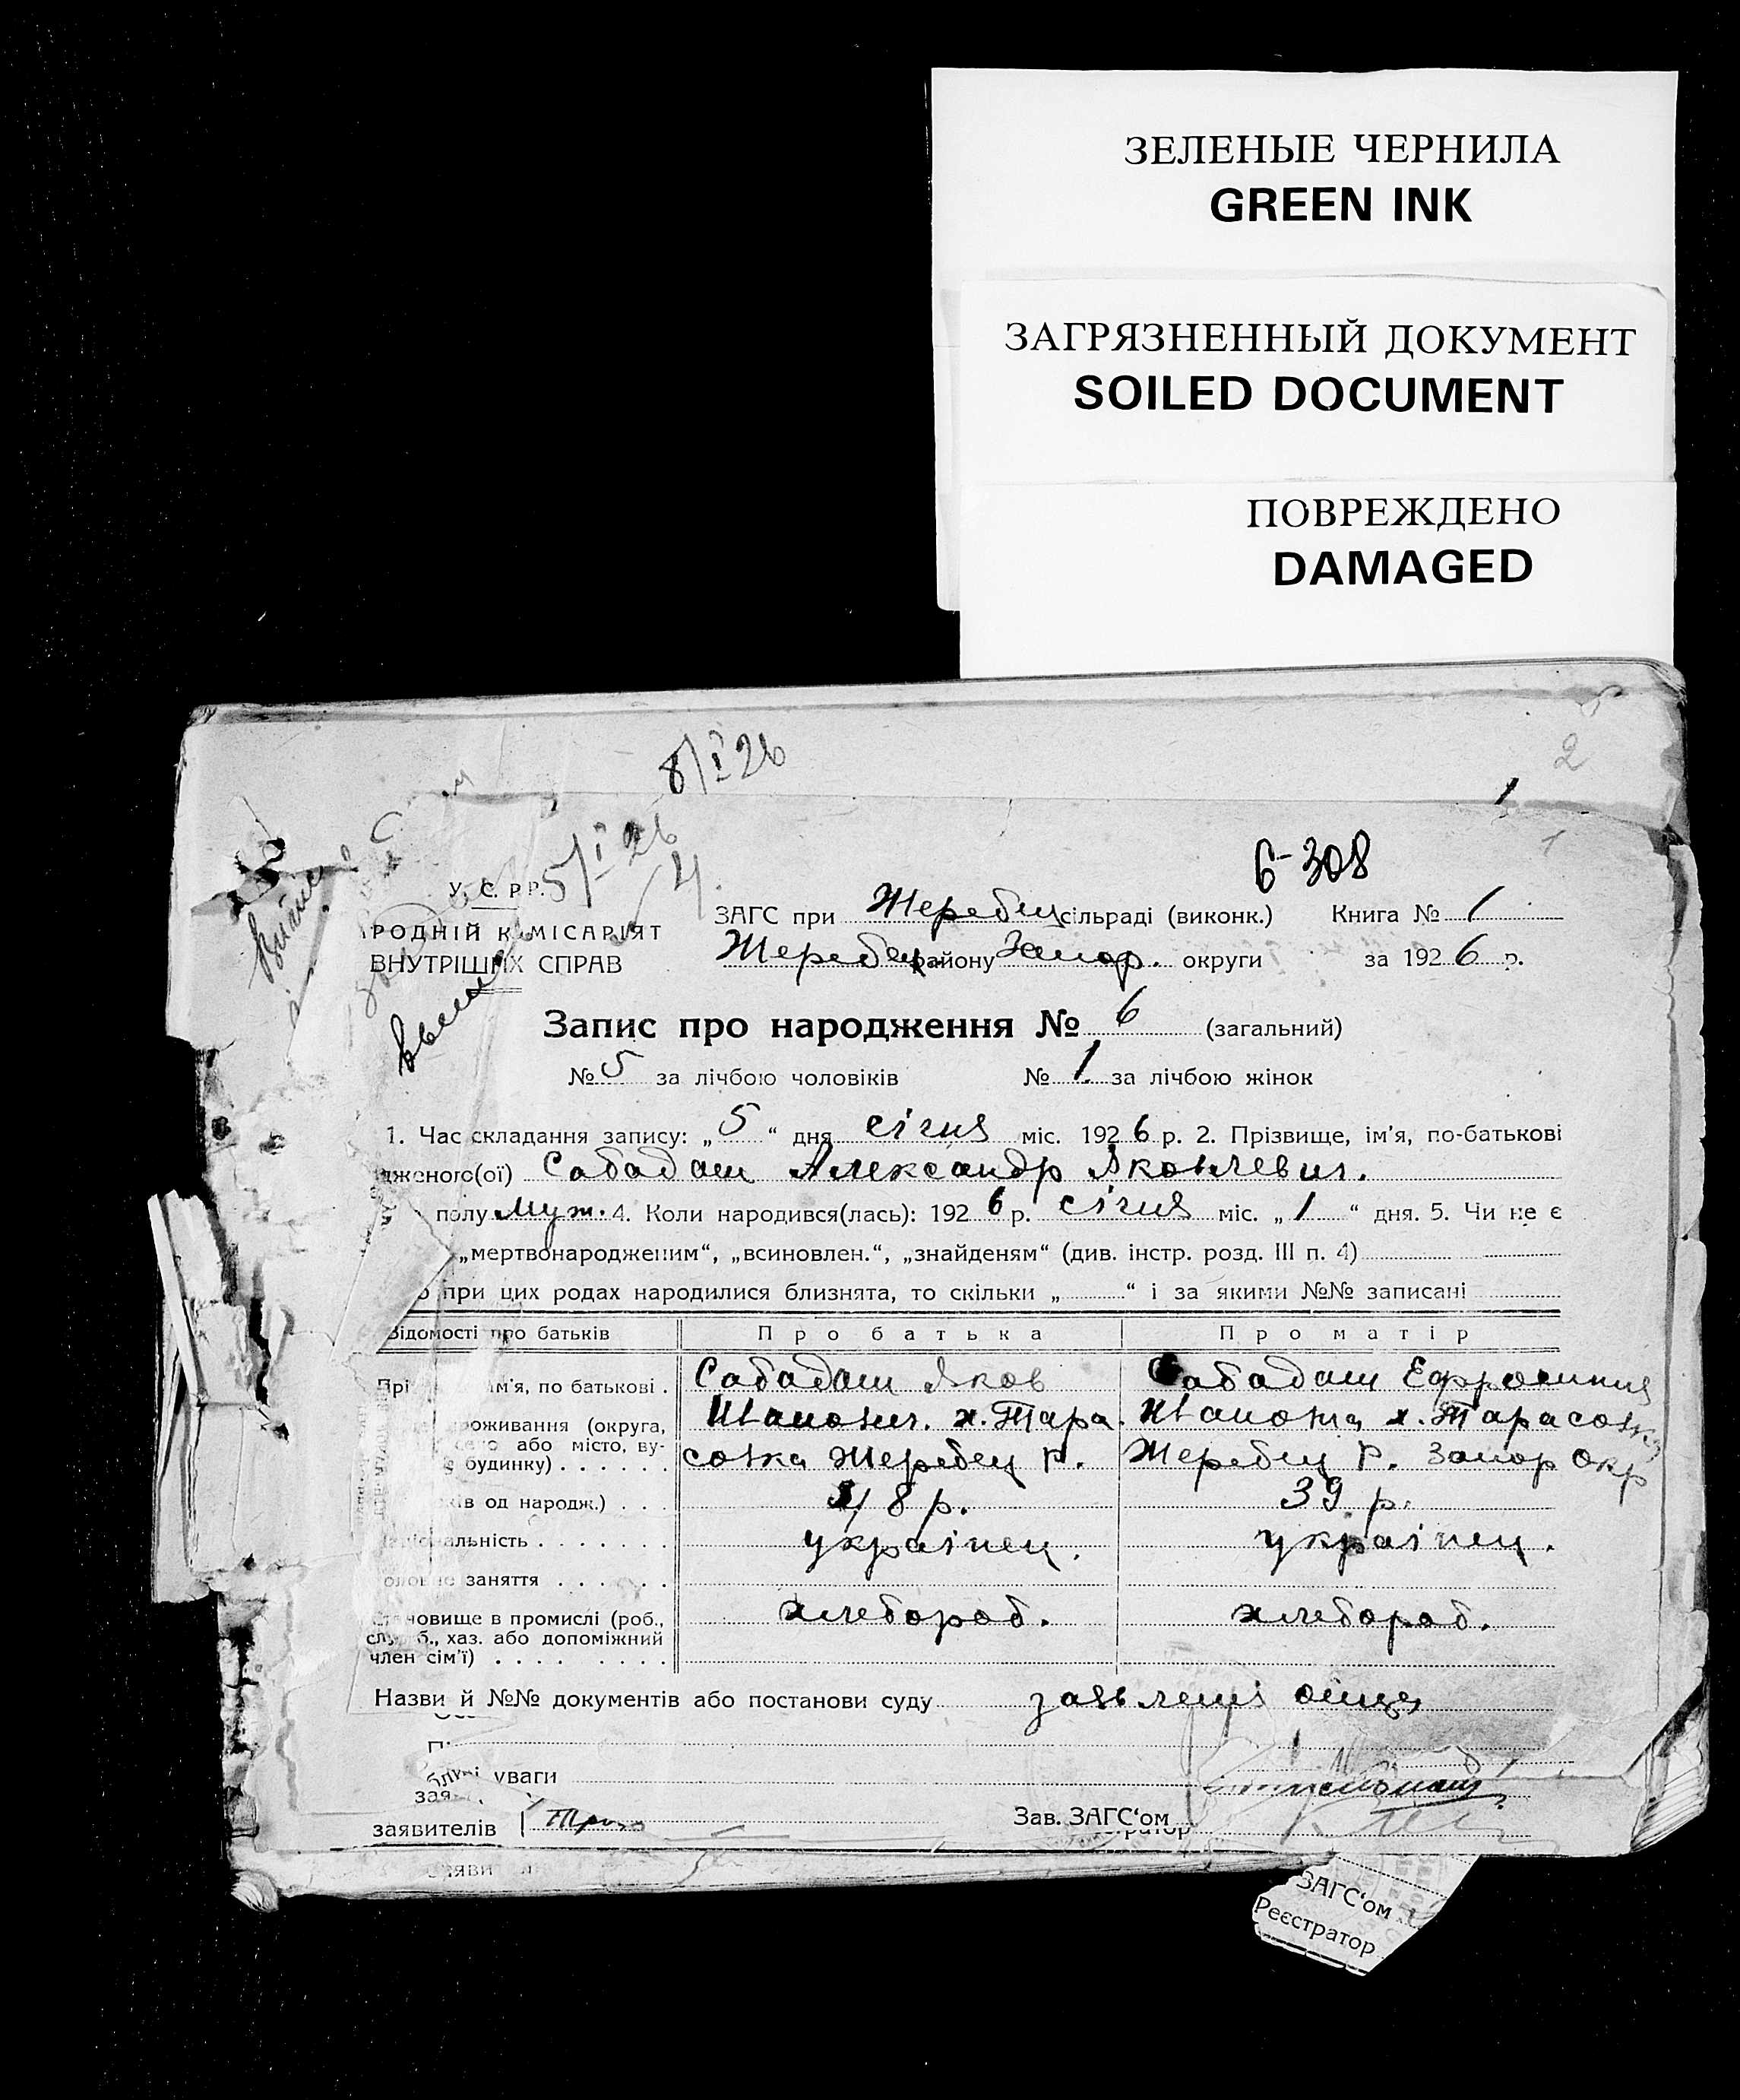 ЗЕЛЕНЫЕ ЧЕРНИЛА
GREEN INK
ЗАГРЯЗНЕННЫЙ ДОКУМЕНТ
SOILED DOCUMENT
ПОВРЕЖДЕНО
DAMAGED
8/I 26
2
1
5/I 26
6-308
1
У. С. Р.Р.
РОДНІЙ КОМІСАРІЯТ
ВНУТРІШНІХ СПРАВ
ЗАГС при Жеребец сільраді (виконк.) Книга № 1
Жеребец. району Запор. округи за 1926 р.
Запис про народження № 6 (загальний)
№ 5 за лічбою чоловіків № 1 за лічбою жінок
1. Час складання запису: „5“ дня січня міс. 1926 р. 2. Прізвище, ім'я, по-батькові
дженого(ої) Сабадаш Александр Яковлевич.
полу Муж. 4. Коли народився(лась): 1926 р. січня міс. „1“ дня. 5. Чи не є
„мертвонародженим“, „всиновлен.“, „знайденям“ (див. інстр. розд. III п. 4)
при цих родах народилися близнята, то скільки „ “ і за якими №№ записані
Відомості про батьків Про батька Про матір
ім'я, по батькові . Сабадаш Яков Сабадаш Ефросиния
проживання (округа, Иванович. х. Тара- Ивановна х. Тарасовка
село або місто, ву- совка Жеребец р. Жеребец р. Запор окр
будинку)
од народж.) 48 р. 39 р.
національність українец. українец.
головне заняття
становище в промислі (роб., хлебороб. хлебороб.
служб., хаз. або допоміжний
член сім'ї)
Назви й №№ документів або постанови суду заявлені отца
уваги
Зав. ЗАГС'ом
заявителів
ЗАГС'ом
Реєстратор